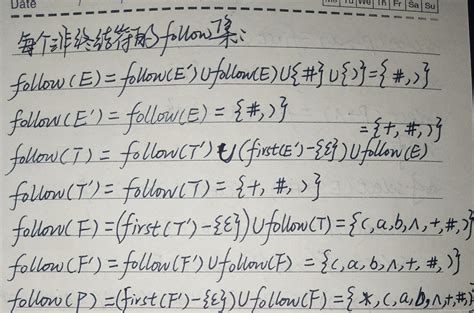 Date Mo Tu We Th Fr Sa Su
每个非终结符的follow集:
follow(E) = follow(E')∪follow(E)∪{#}∪{)}={#,)}
follow(E') = follow(E) = {#,)}
={+,#,)}
follow(T) = follow(T')∪(first(E')-{ε})∪follow(E)
follow(T') = follow(T) = {+,#,)}
follow(F) =(first(T')-{ε})∪follow(T)={(,a,b,∧,+,#,)}
follow(F') = follow(F')∪follow(F) = {(,a,b,∧,+,#,)}
follow(P) =(first(F')-{ε})∪follow(F)={*,(,a,b,∧,+,#,)}